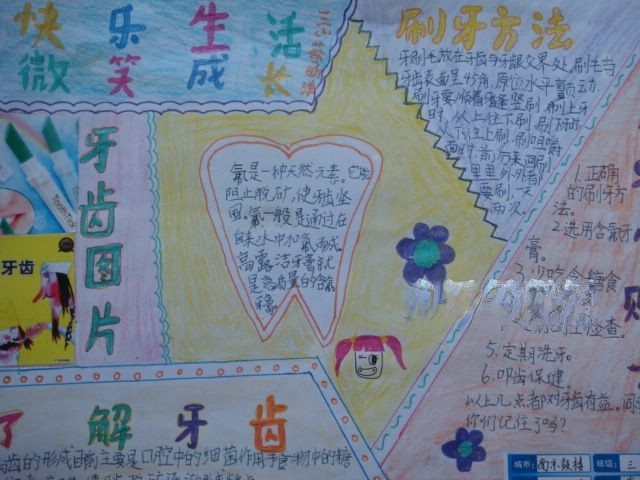 快乐生活
微笑成长
刷牙方法
牙刷毛放在牙齿与牙龈交界处,刷毛与
牙齿表面呈45角,原位水平颤动.
刷牙要顺着牙缝竖刷,刷上牙
时,从上往下刷,刷下牙时
从下往上刷,刷咀嚼
面时前后来回刷
里里外外都
要刷,一天
两次。
牙齿图片
牙齿
氟是一种天然元素。它能
阻止脱矿,使牙齿坚
固,氟一般是通过在
自来水中加氟而成。
高露洁牙膏就
是高质量的含氟
牙膏
1.正确
的刷牙方
法。
2.选用含氟牙
膏。
3.少吃含糖食
检查。
5.定期洗牙。
6.叩齿保健。
以上几点都对牙齿有益,同学
你们记住了吗?
了解牙齿
齿的形成目前主要是口腔中的细菌作用于食物中的糖
城市:南京鼓楼
班级:三